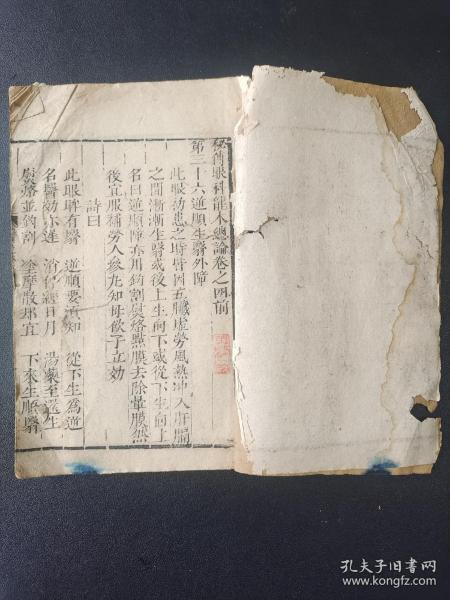 秘傳眼科龍木總論卷之四前
第三十六逆順生翳外障
此眼初患之時皆因五臟虛勞風熱冲入肝膈
之間漸漸生翳或從上生向下或從下生向上
名曰逆順障亦用鈎割熨烙㸃膜去除暈膜然
後宜服補勞人參丸知母飲子立効
詩曰
此眼睢有翳 逆順要須知 從下生為逆
名醫効亦遲 治 經日月 湯藥至 生
熨烙並鈎割 塗摩散 宜 下來生順翳
孔夫子旧书网
www.kongfz.com